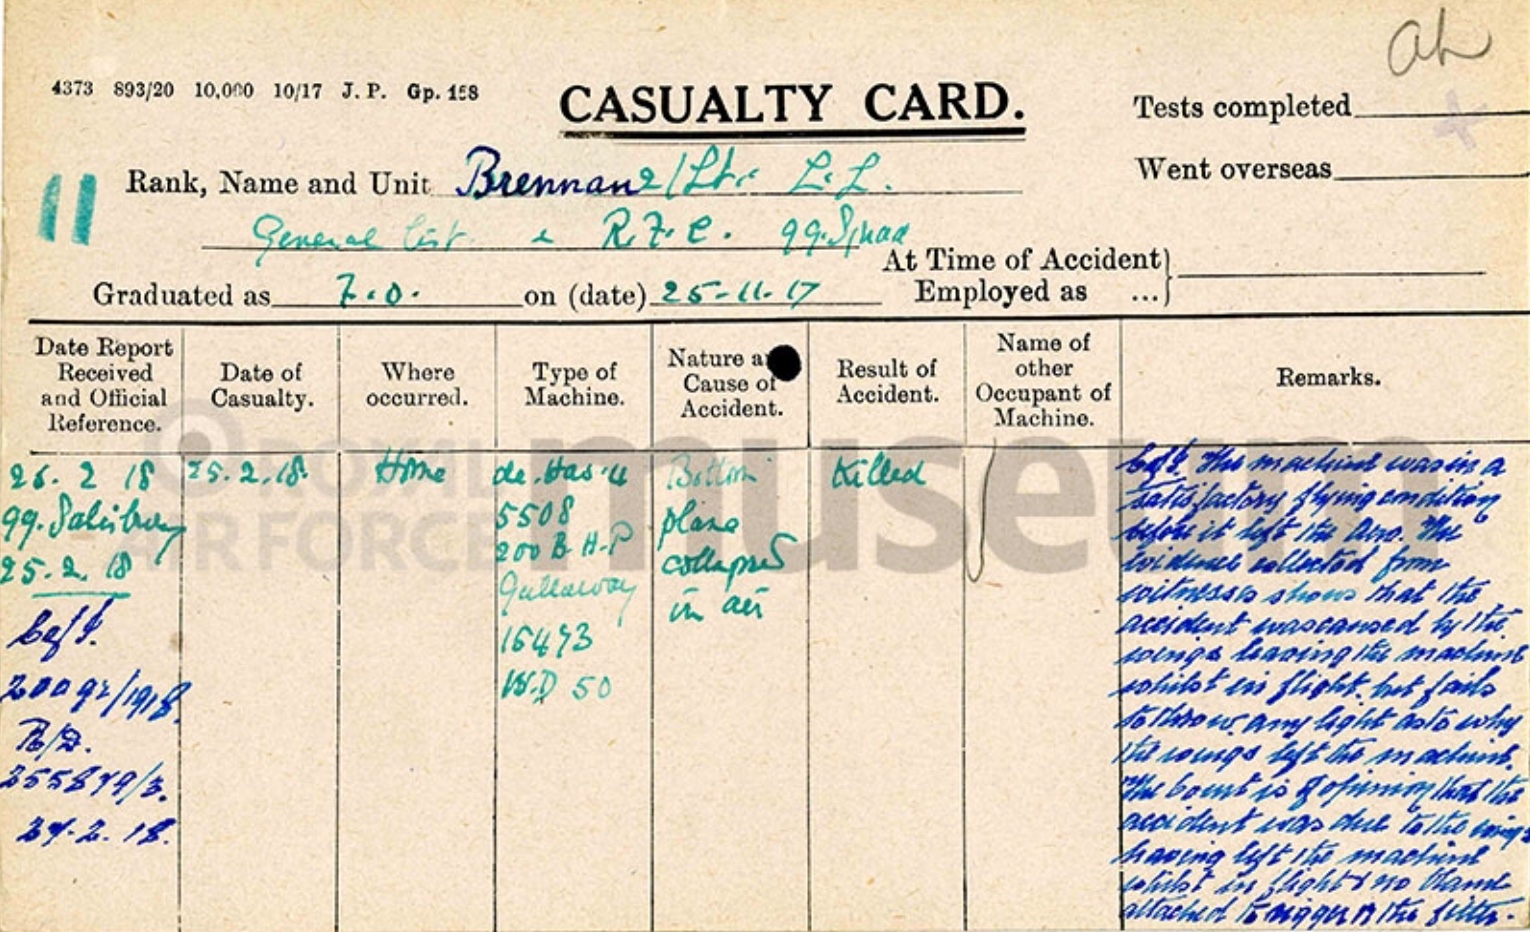 ah
4373 893/20 10,000 10/17 J. P. Gp. 158
CASUALTY CARD.
Tests completed
Went overseas
11
Rank, Name and Unit Brennan 2/Lt. L.L.
General List & R.F.C. 99. Squad
At Time of Accident
Employed as ...
Graduated as F.O. on (date) 25-11-17
Date Report
Received
and Official
Reference.
Date of
Casualty.
Where
occurred.
Type of
Machine.
Nature a
Cause of
Accident.
Result of
Accident.
Name of
other
Occupant of
Machine.
Remarks.
26. 2 18
99. Salisbury
25. 2. 18
C of I.
200 92/1918
R/D.
255879/3.
27. 2. 18.
25. 2. 18.
Home
de. Has. 4
5508
200 B H.P
Gallaway
15473
W.D 50
Bottom
plane
collapsed
in air
Killed
C of I. The machine was in a
satisfactory flying condition
before it left the Aero. The
evidence collected from
witnesses shows that the
accident was caused by the
wings leaving the machine
whilst in flight. but fails
to throw any light as to why
the wings left the machine.
The Court is of opinion that the
accident was due to the wings
having left the machine
whilst in flight & no blame
attached to rigger or the fitter.
ROYAL
AIR FORCE
museum